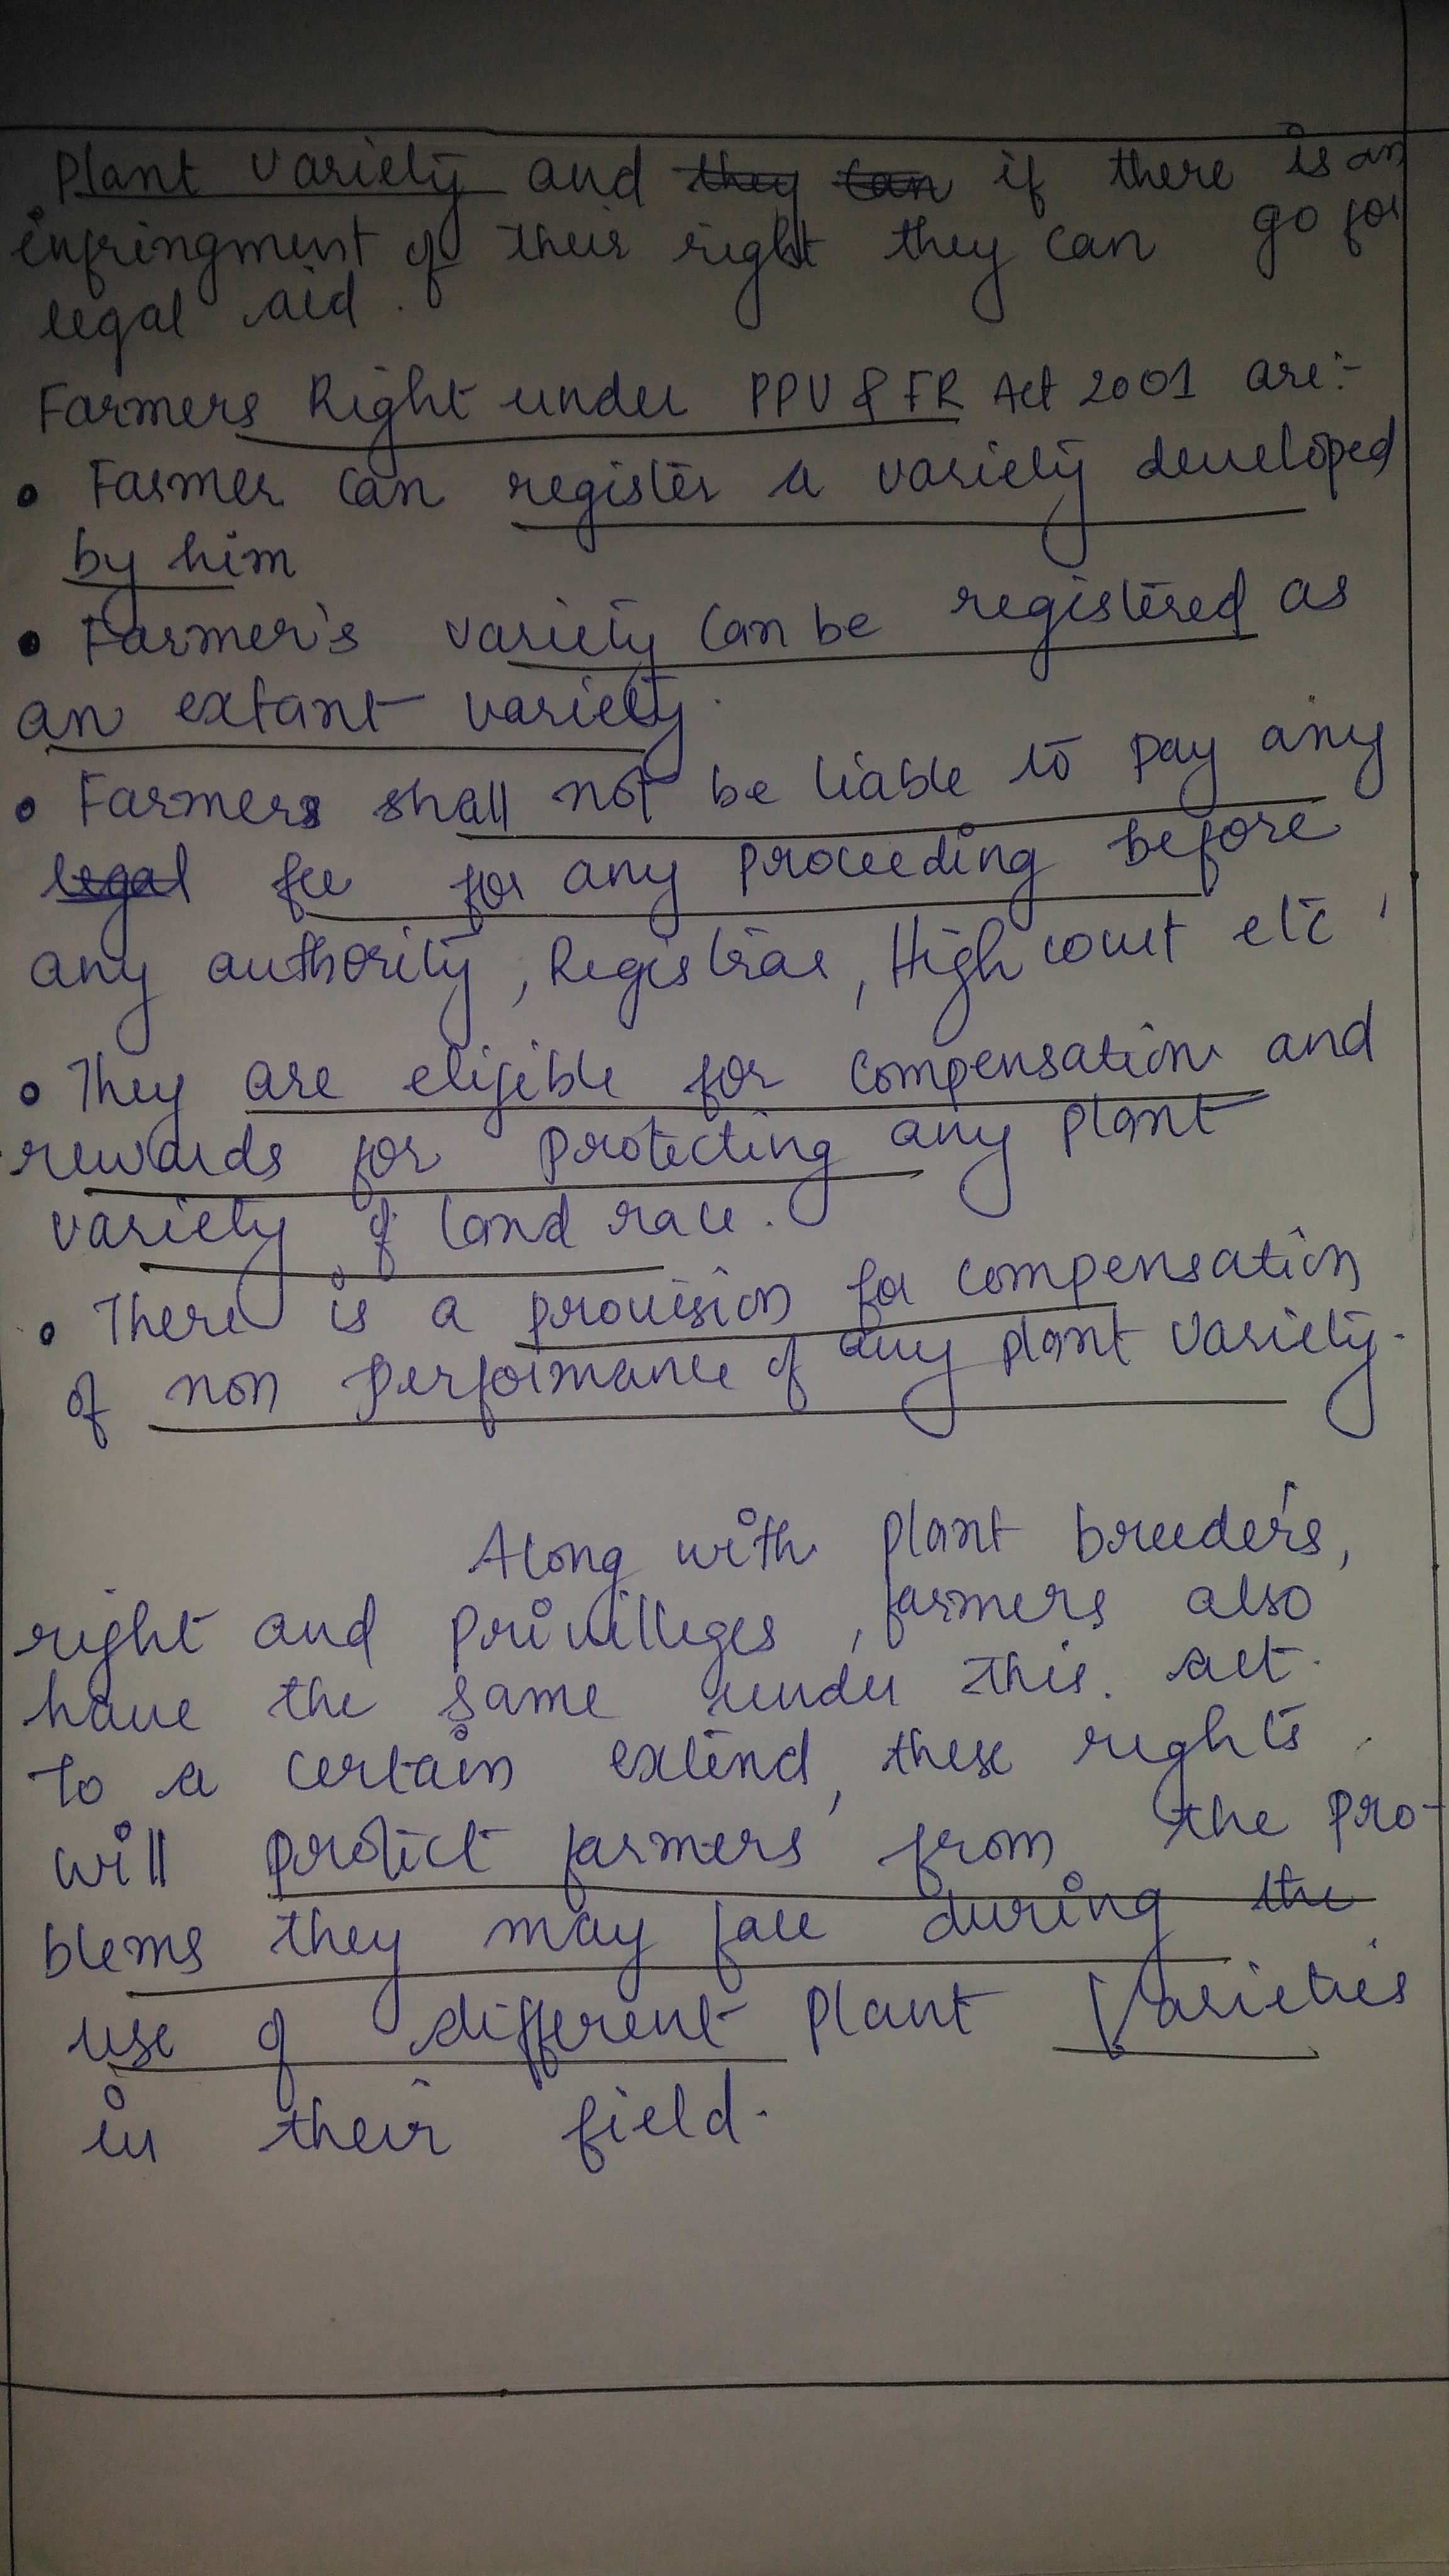 Plant variety and they can if there is an
infringment of their right they can go for
legal aid.
Farmers Right under PPV & FR Act 2001 are:-
• Farmer can register a variety developed
by him
• Farmer's variety can be registered as
an extant variety.
• Farmers shall not be liable to pay any
legal fee for any proceeding before
any authority, Registrar, High court etc
• They are eligible for compensation and
rewards for protecting any plant
variety of land race.
• There is a provision for compensation
of non performance of any plant variety.
Along with plant breeder's,
right and privilleges, farmers also
have the same under this act.
To a certain extend, these rights
will protect farmers from the pro-
blems they may face during the
use of different plant Varieties
in their field.